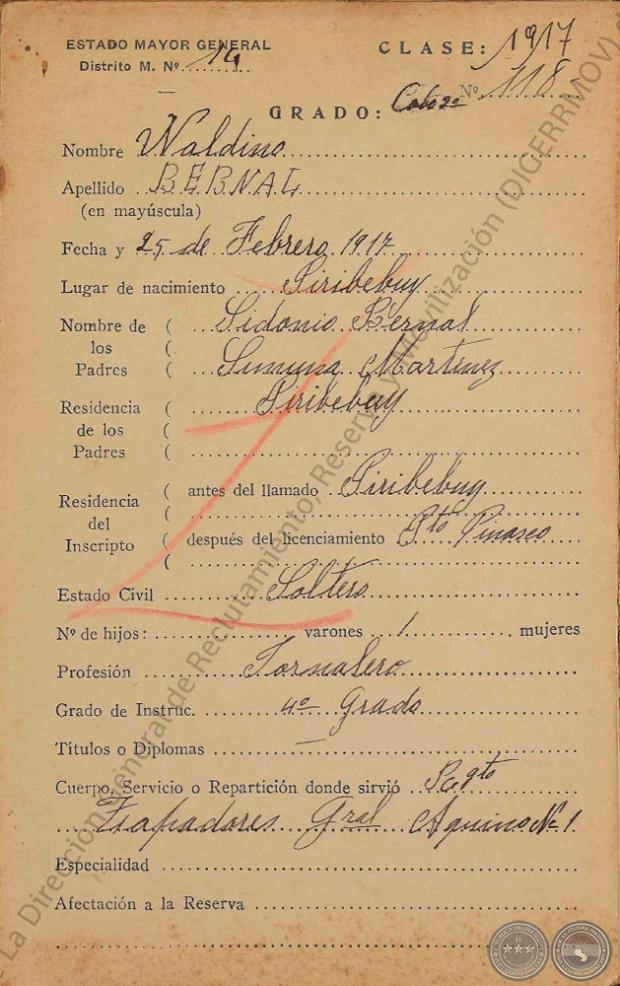 ESTADO MAYOR GENERAL
Distrito M. Nº 14
CLASE: 1917
Nº 118
GRADO: Cabo 2º
Nombre Waldino
Apellido BERNAL
(en mayúscula)
Fecha y 25 de Febrero 1917
Lugar de nacimiento Piribebuy
Nombre de los Padres ( Sidonio Bernal
( Martinez
Residencia de los Padres ( Piribebuy
Residencia del Inscripto ( antes del llamado Piribebuy
( después del licenciamiento Pto Pinasco
Estado Civil Soltero
Nº de hijos: varones 1 mujeres
Profesión Jornalero
Grado de Instruc. 4º Grado
Títulos o Diplomas —
Cuerpo, Servicio o Repartición donde sirvió
Zapadores Gral Aquino Nº 1
Especialidad
Afectación a la Reserva
La Dirección General de Reclutamiento, Reserva y Movilización (DIGERRMOV)